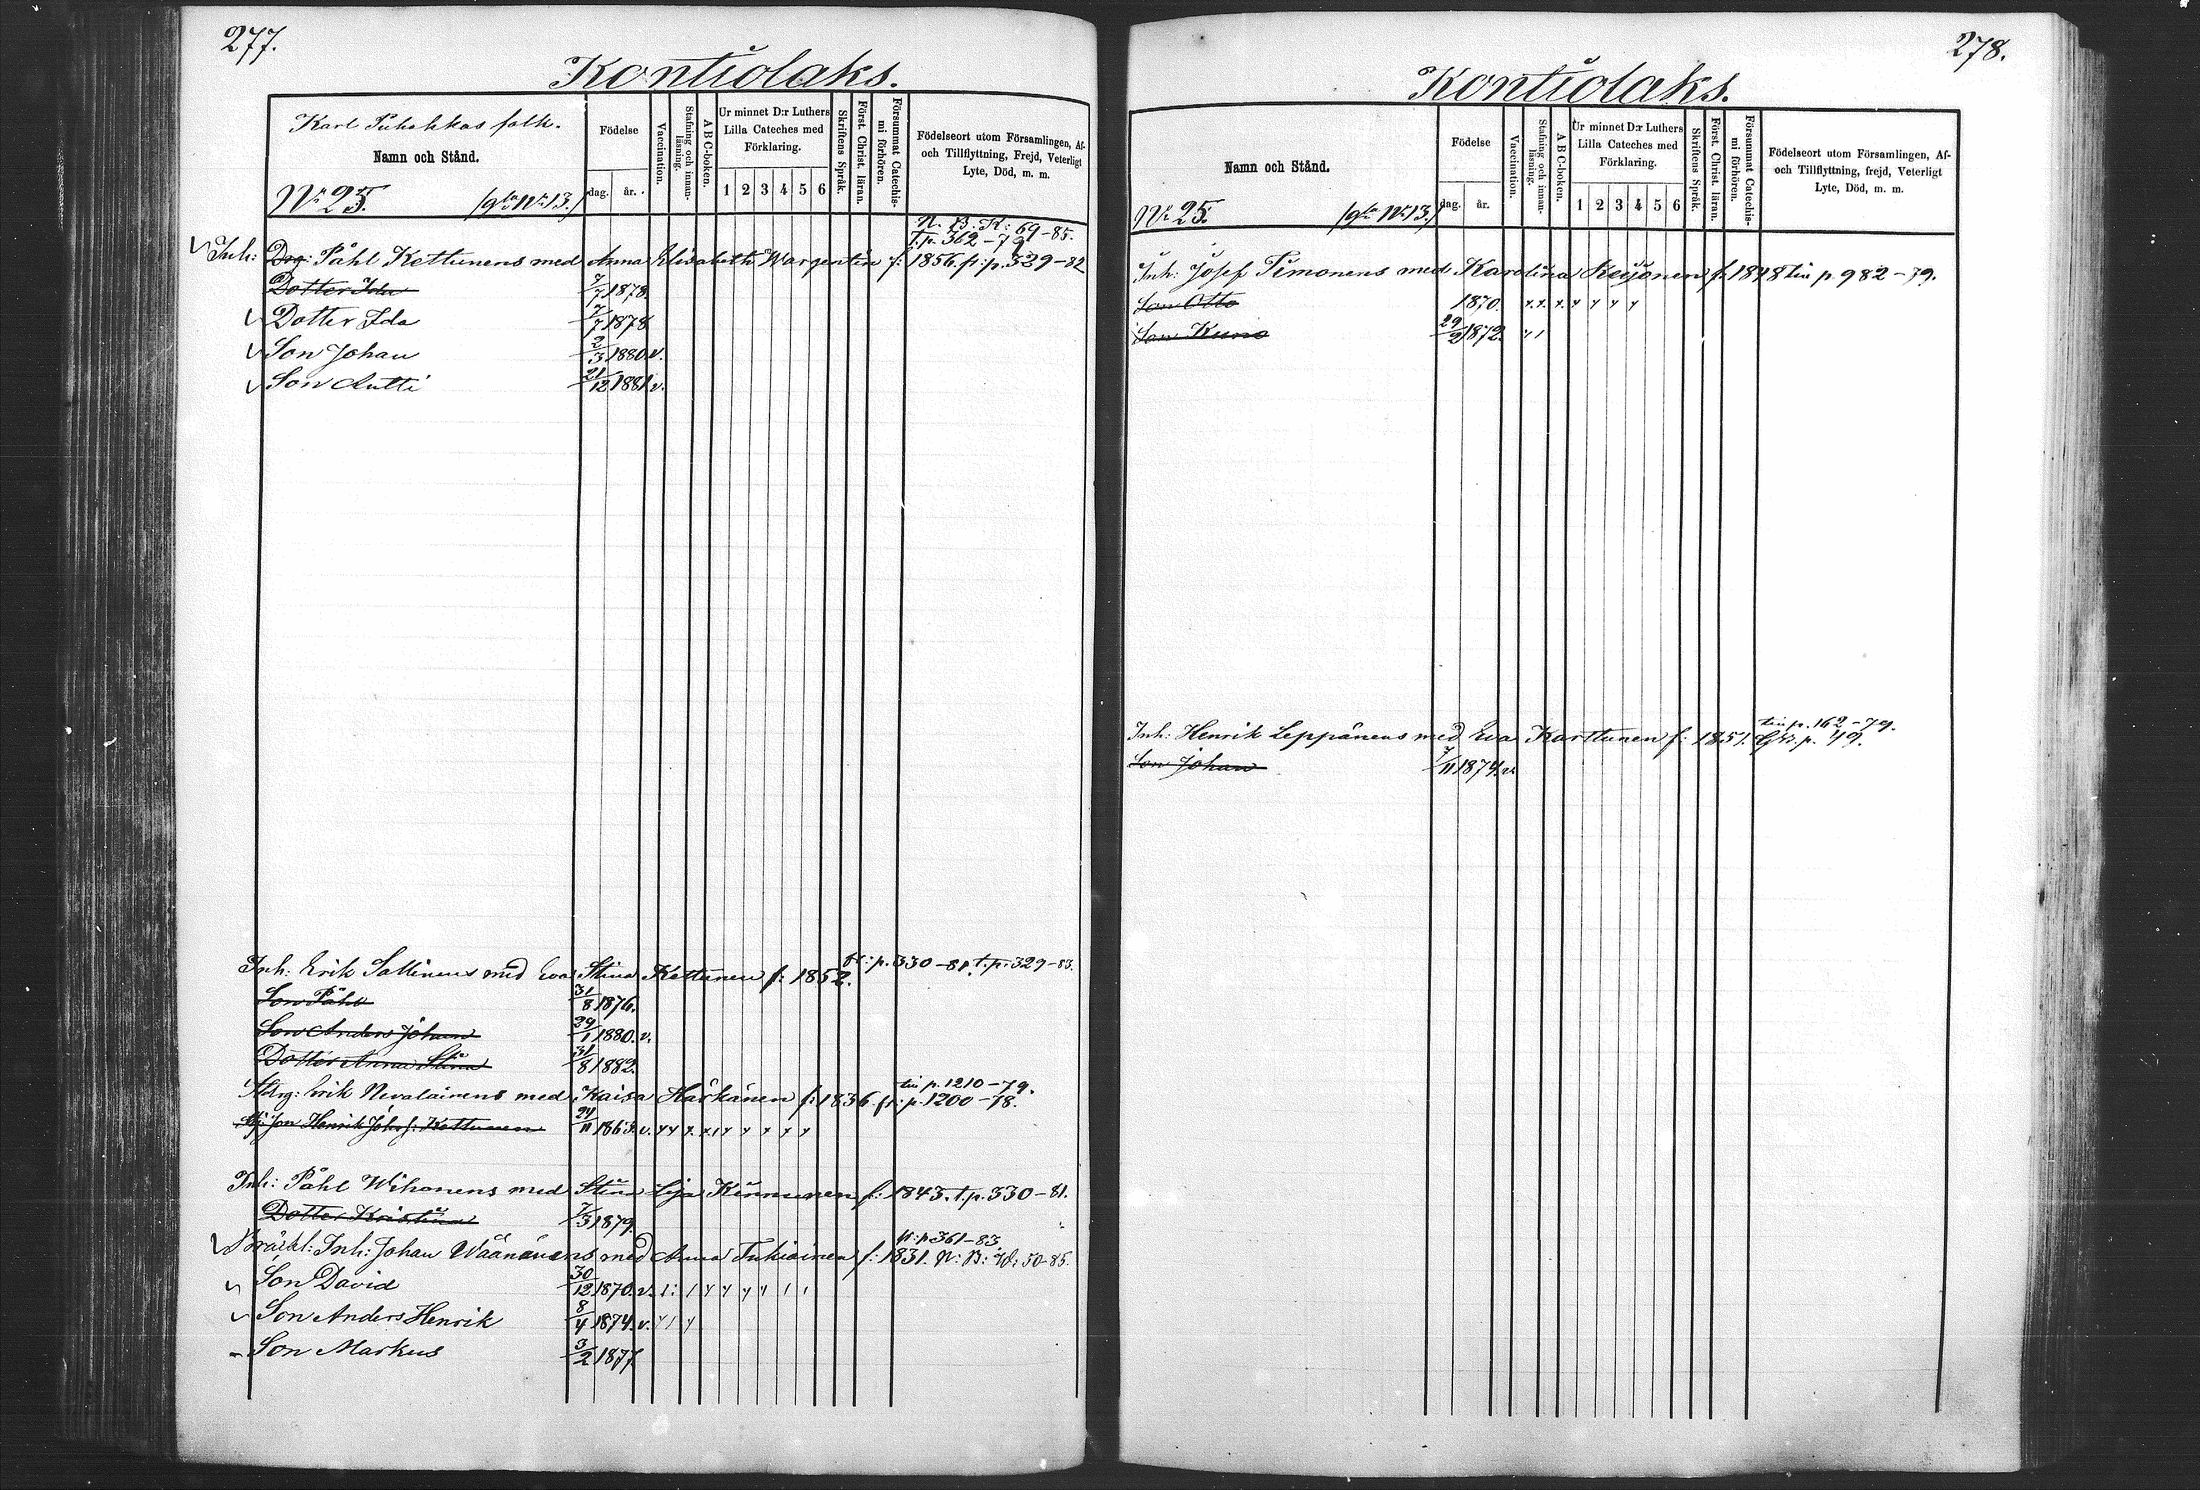 277.
Kontiolaks.
Karl Puhakkas folk.
Namn och Stånd.
No 25. /gla No 13./
Födelse
dag. år.
Vaccination.
Stafning och innan-läsning.
A B C-boken.
Ur minnet D:r Luthers Lilla Cateches med Förklaring.
1 2 3 4 5 6
Skriftens Språk.
Först. Christ. läran.
Försummat Catechis-mi förhören.
Födelseort utom Församlingen, Af-
och Tillflyttning, Frejd, Veterligt
Lyte, Död, m. m.
N. B. K: 69-85.
T. p. 362-79
Inh: Drg: Påhl Kettunens med Anna Elisabeth Wargentin f: 1856. fr: p. 329-82
Dotter Ida 7/7 1878.
Dotter Ida 7/7 1878
Son Johan 2/3 1880. v.
Son Antti 21/12 1881. v.
fr: p. 330-81. t. p. 329-83.
Inh: Erik Sallinens med Eva Stina Kettunen f: 1852.
Son Påhl 31/8 1876.
Son Anders Johan 29/1 1880. v.
Dotter Anna Stina 31/8 1882.
till p. 1210-79.
Adrg: Erik Nevalainens med Kaisa Härkänen f: 1836. fr: p. 1200-78.
Son Henrik Johs f: Kettunen 24/11 1863. v.
Inh: Påhl Wihonens med Stina Lisa Kinnunen f: 1843. t. p. 330-81.
Dotter Kristina 7/3 1879.
fr: p. 361-83.
Bräckl: Inh: Johan Wäänänens med Anna Tukiainen f: 1831. N: B: W: 50-85.
Son David 30/12 1870. v.
Son Anders Henrik 8/4 1874. v.
Son Markus 3/2 1877.
278.
Kontiolaks.
Namn och Stånd.
No 25. /gla No 13./
Födelse
dag. år.
Vaccination.
Stafning och innan-läsning.
A B C-boken.
Ur minnet D:r Luthers Lilla Cateches med Förklaring.
1 2 3 4 5 6
Skriftens Språk.
Först. Christ. läran.
Försummat Catechis-mi förhören.
Födelseort utom Församlingen, Af-
och Tillflyttning, frejd, Veterligt
Lyte, Död, m. m.
Inh: Josef Timonens med Karolina Keijonen f: 1848 till p. 982-79.
Son Otto 1870.
Son Kuno 29/2 1872.
till p. 162-79.
Inh: Henrik Leppänens med Eva Karttunen f: 1851. Gr: p. 49.
Son Johan 7/11 1874. v.